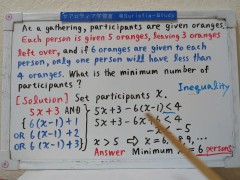 At a gathering, participants are given oranges.
Each person is given 5 oranges, leaving 3 oranges
left over, and if 6 oranges are given to each
person, only one person will have less than
4 oranges. What is the minimum number of
participants? Inequality
[Solution] Set participants x.
5x+3 AND
{6(x-1)+1
OR 6(x-1)+2
OR 6(x-1)+3}
5x+3-6(x-1)<4
5x+3-6x+6<4
-x<-5
x>5 ⇒ x=6, 7, 8, 9, …
Answer Minimum x=6 persons